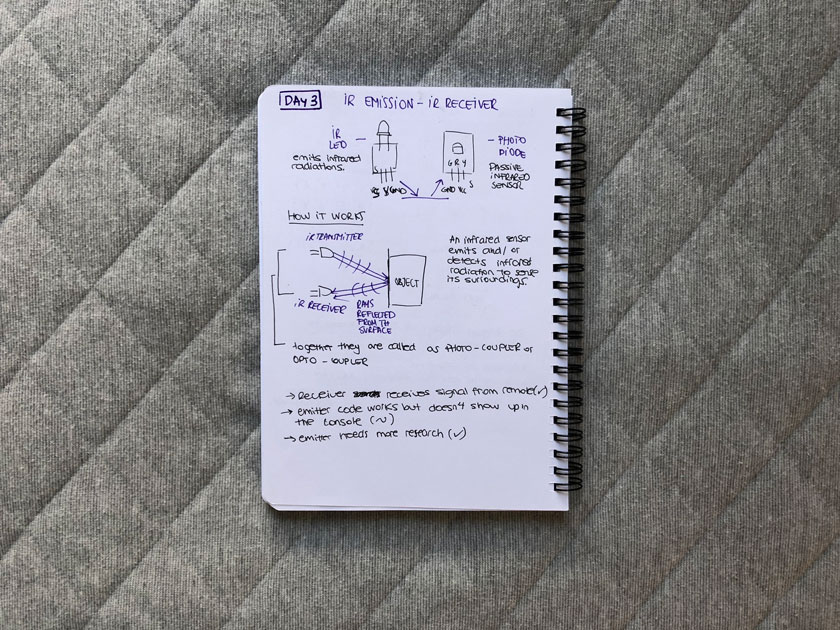 DAY 3
IR EMISSION - IR RECEIVER
IR
LED
emits infrared
radiations.
S
GND
G R Y
GND Vcc S
PHOTO
DIODE
PASSIVE
INFRARED
SENSOR
HOW IT WORKS
IR TRANSMITTER
OBJECT
IR RECEIVER
RAYS
REFLECTED
FROM TH
SURFACE
An infrared sensor
emits and/or
detects infrared
radiation to sense
its surroundings.
together they are called as PHOTO-COUPLER or
OPTO-COUPLER
→ Receiver receives signal from remote (✓)
→ emitter code works but doesn't show up in
the console (~)
→ emitter needs more research (✓)